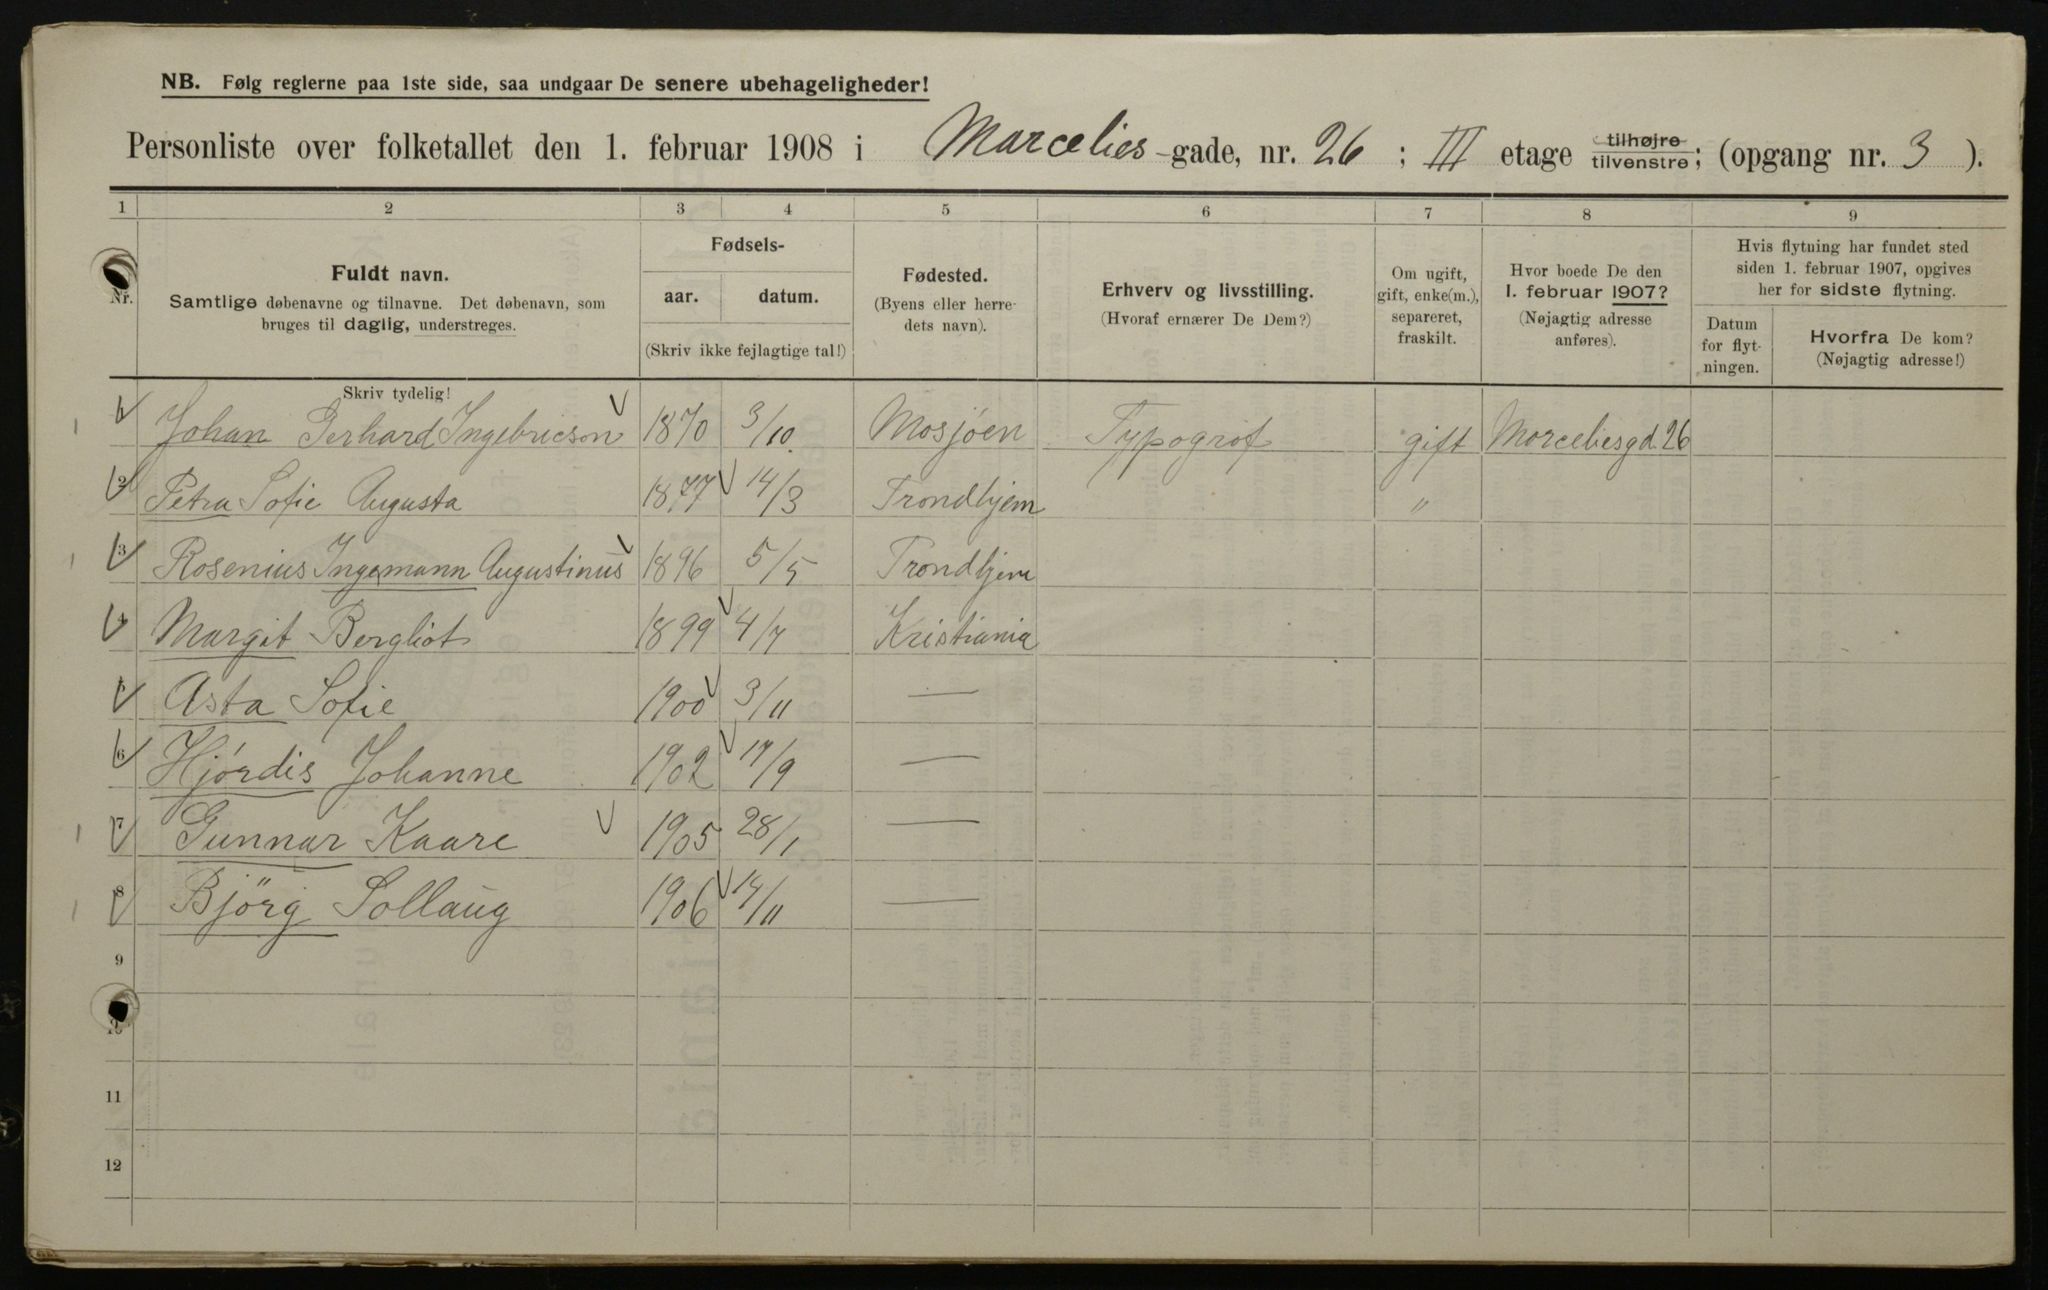 NB. Følg reglerne paa 1ste side, saa undgaar De senere ubehageligheder!
Personliste over folketallet den 1. februar 1908 i Marcelies-gade, nr. 26 ; III etage tilhøjre/tilvenstre; (opgang nr. 3 ).
1 2 3 4 5 6 7 8 9
Nr. Fuldt navn. Samtlige døbenavne og tilnavne. Det døbenavn, som
bruges til daglig, understreges.
Fødsels-
aar. datum.
(Skriv ikke fejlagtige tal!)
Fødested.
(Byens eller herre-
dets navn).
Erhverv og livsstilling.
(Hvoraf ernærer De Dem?)
Om ugift,
gift, enke(m.),
separeret,
fraskilt.
Hvor boede De den
1. februar 1907?
(Nøjagtig adresse
anføres).
Hvis flytning har fundet sted
siden 1. februar 1907, opgives
her for sidste flytning.
Datum
for flyt-
ningen.
Hvorfra De kom?
(Nøjagtig adresse!)
Skriv tydelig!
1 Johan Gerhard Ingebricson 1870 3/10. Mosjøen Typograf gift Marceliesgd. 26
2 Petra Sofie Augusta 1877 14/3 Trondhjem "
3 Rosenius Ingemann Augustinus 1896 5/5 Trondhjem
4 Margit Bergliot 1899 4/7 Kristiania
5 Asta Sofie 1900 3/11 —
6 Hjørdis Johanne 1902 19/9 —
7 Gunnar Kaare 1905 28/1 —
8 Björg Sollaug 1906 14/11 —
9
10
11
12